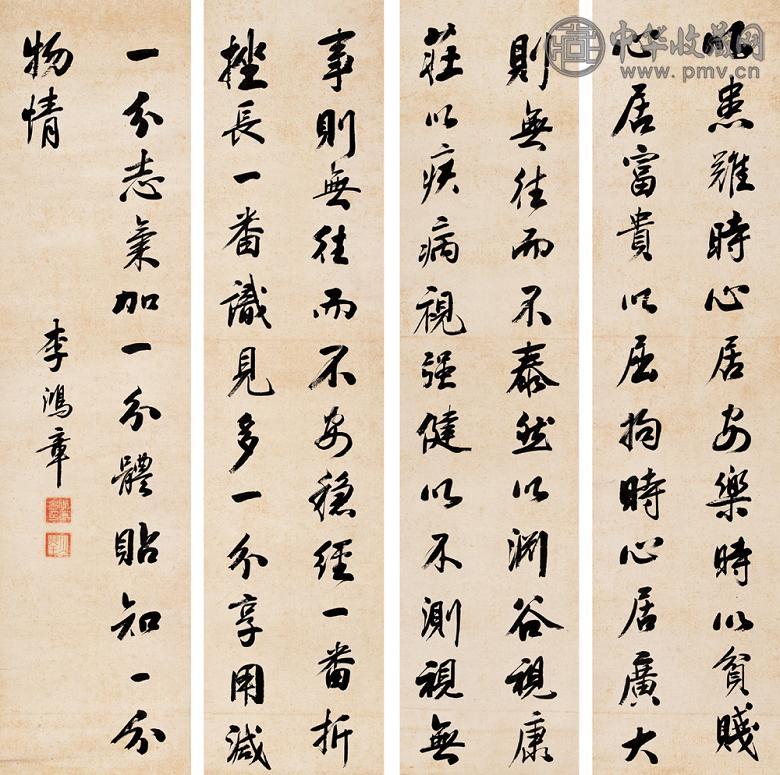 以患難時心居安樂時以貧賤
心居富貴以屈拘時心居廣大
則無往而不泰然以淵谷視康
莊以疾病視强健以不測視無
事則無往而不安穩經一番折
挫長一番識見多一分享用減
一分志氣加一分體貼知一分
物情
李鴻章
中华收藏网
www.pmv.cn